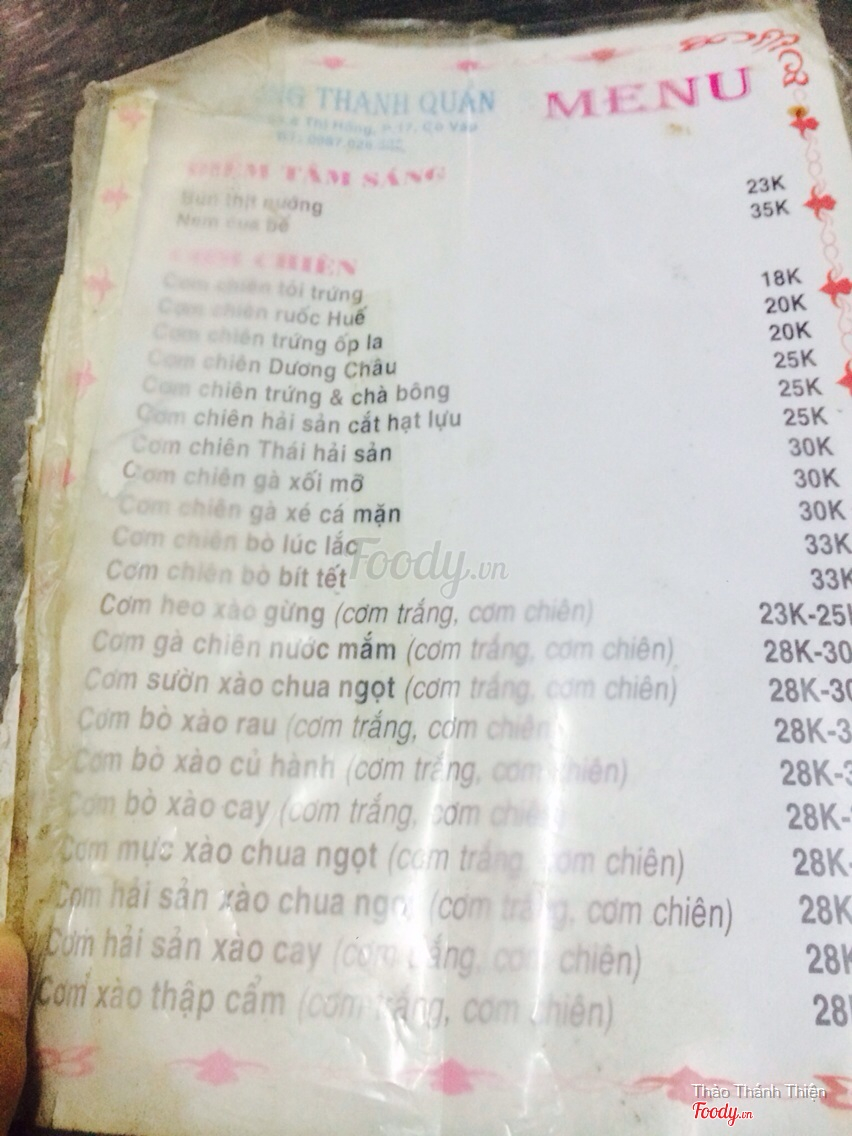 THANH QUÁN
MENU
P.17, Gò Vấp
ĐIỂM TÂM SÁNG
Bún thịt nướng 23K
Nem cua bể 35K
CƠM CHIÊN
Cơm chiên tỏi trứng 18K
Cơm chiên ruốc Huế 20K
Cơm chiên trứng ốp la 20K
Cơm chiên Dương Châu 25K
Cơm chiên trứng & chà bông 25K
Cơm chiên hải sản cắt hạt lựu 25K
Cơm chiên Thái hải sản 30K
Cơm chiên gà xối mỡ 30K
Cơm chiên gà xé cá mặn 30K
Cơm chiên bò lúc lắc 33K
Cơm chiên bò bít tết 33K
Cơm heo xào gừng (cơm trắng, cơm chiên) 23K-25
Cơm gà chiên nước mắm (cơm trắng, cơm chiên) 28K-30
Cơm sườn xào chua ngọt (cơm trắng, cơm chiên) 28K-30
Cơm bò xào rau (cơm trắng, cơm chiên 28K-3
Cơm bò xào củ hành (cơm trắng, cơm chiên) 28K-3
Cơm bò xào cay (cơm trắng, cơm chiên 28K-
Cơm mực xào chua ngọt (cơm trắng, cơm chiên) 28K-
Cơm hải sản xào chua ngọt (cơm trắng, cơm chiên) 28K
Cơm hải sản xào cay (cơm trắng, cơm chiên) 28K
Cơm xào thập cẩm (cơm trắng, cơm chiên) 28
Foody.vn
Thảo Thánh Thiện
Foody.vn